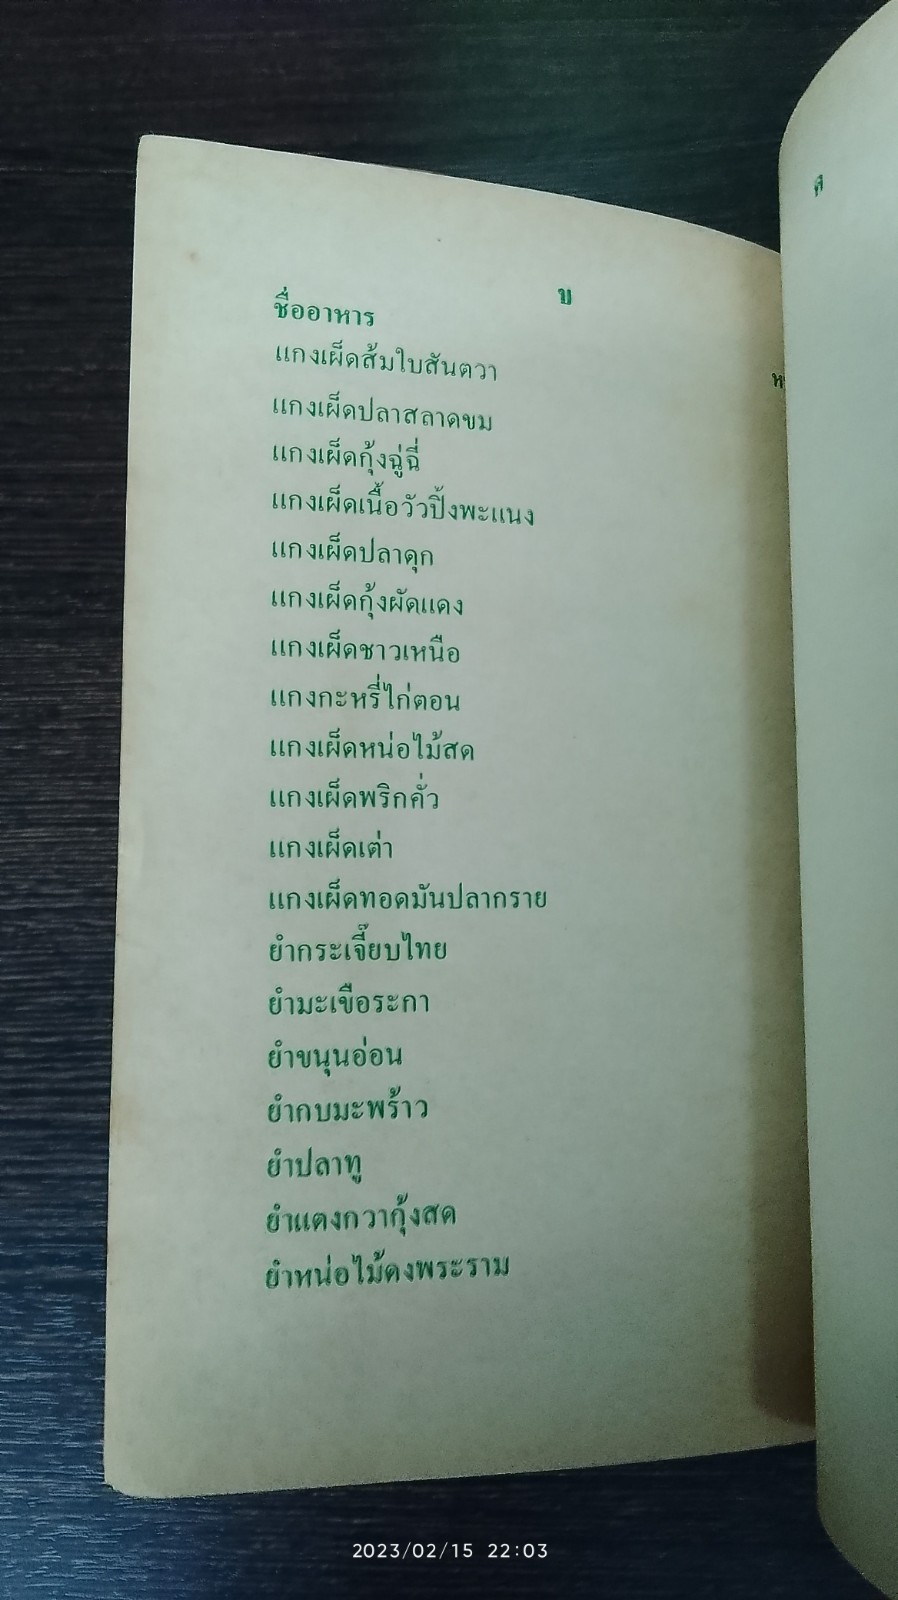 ข
ชื่ออาหาร
แกงเผ็ดส้มใบสันตวา
แกงเผ็ดปลาสลาดขม
แกงเผ็ดกุ้งฉู่ฉี่
แกงเผ็ดเนื้อวัวปิ้งพะแนง
แกงเผ็ดปลาดุก
แกงเผ็ดกุ้งผัดแดง
แกงเผ็ดชาวเหนือ
แกงกะหรี่ไก่ตอน
แกงเผ็ดหน่อไม้สด
แกงเผ็ดพริกคั่ว
แกงเผ็ดเต่า
แกงเผ็ดทอดมันปลากราย
ยำกระเจี๊ยบไทย
ยำมะเขือระกา
ยำขนุนอ่อน
ยำกบมะพร้าว
ยำปลาทู
ยำแตงกวากุ้งสด
ยำหน่อไม้ดงพระราม
2023/02/15 22:03